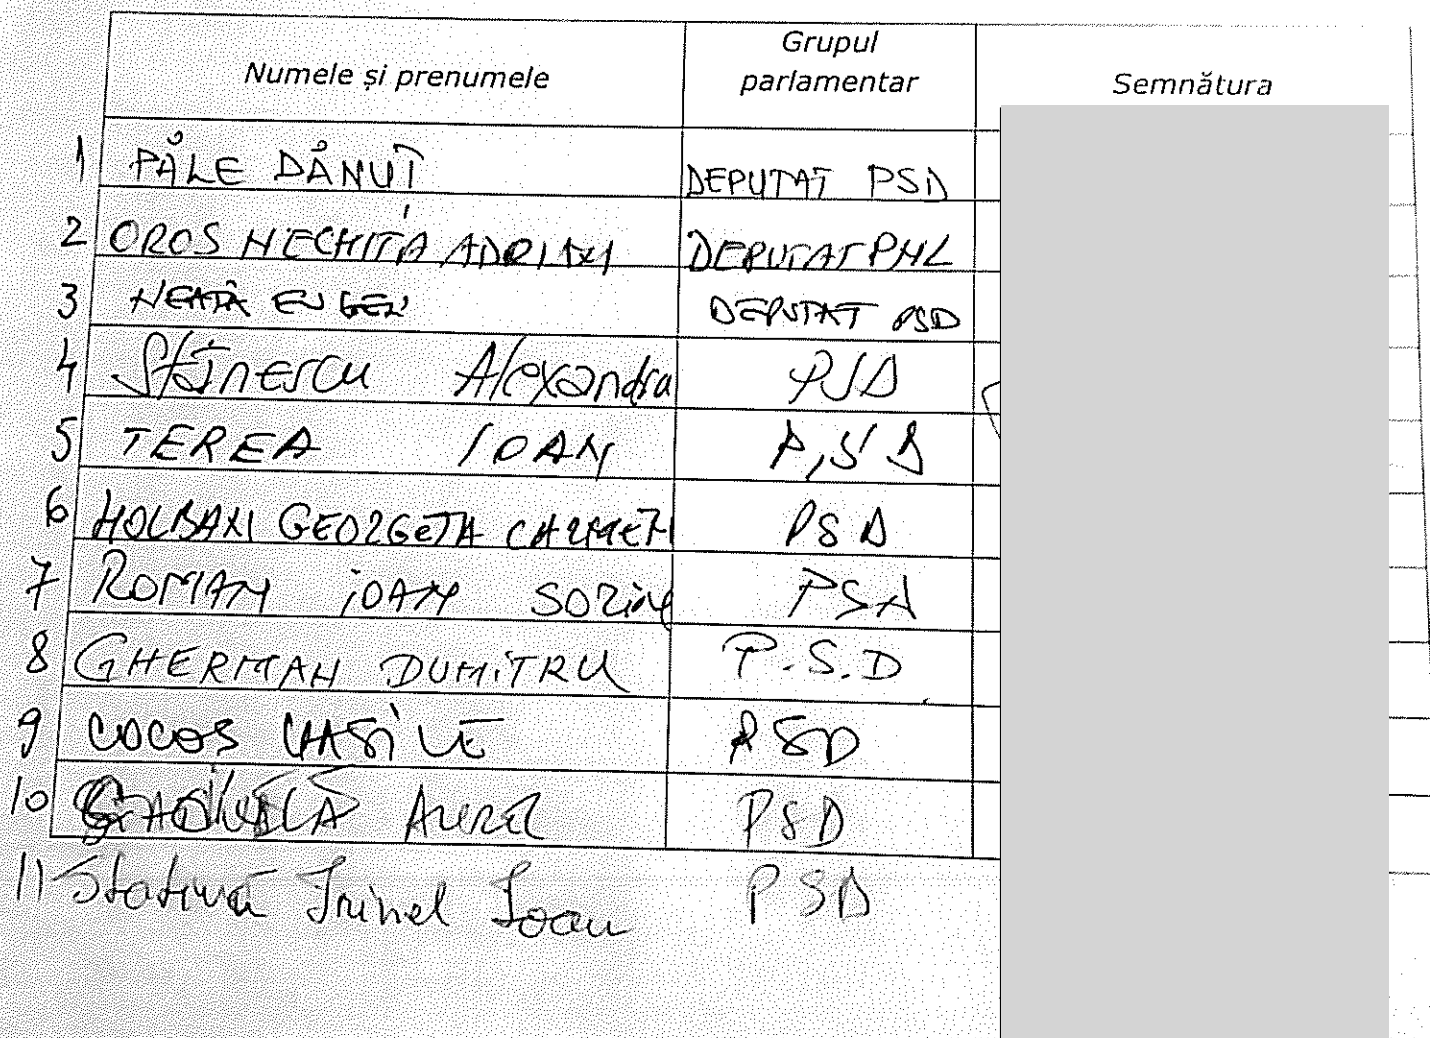 Numele și prenumele Grupul parlamentar Semnătura
1 PĂLE DĂNUȚ DEPUTAT PSD
2 OROS NECHITA ADRIAN DEPUTAT PNL
3 NEAȚĂ EUGEN DEPUTAT PSD
4 Stănescu Alexandra PSD
5 TEREA IOAN P,SD
6 HOLBAN GEORGETA CARMEN PSD
7 ROMAN IOAN SORIN PSD
8 GHERMAN DUMITRU P.S.D
9 COCOS VASILE PSD
10 AUREL PSD
11 Stativă Irinel Ioan PSD